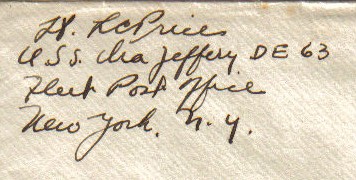 Lt. R C Price
U.S.S. Ira Jeffery DE 63
Fleet Post Office
New York, N.Y.